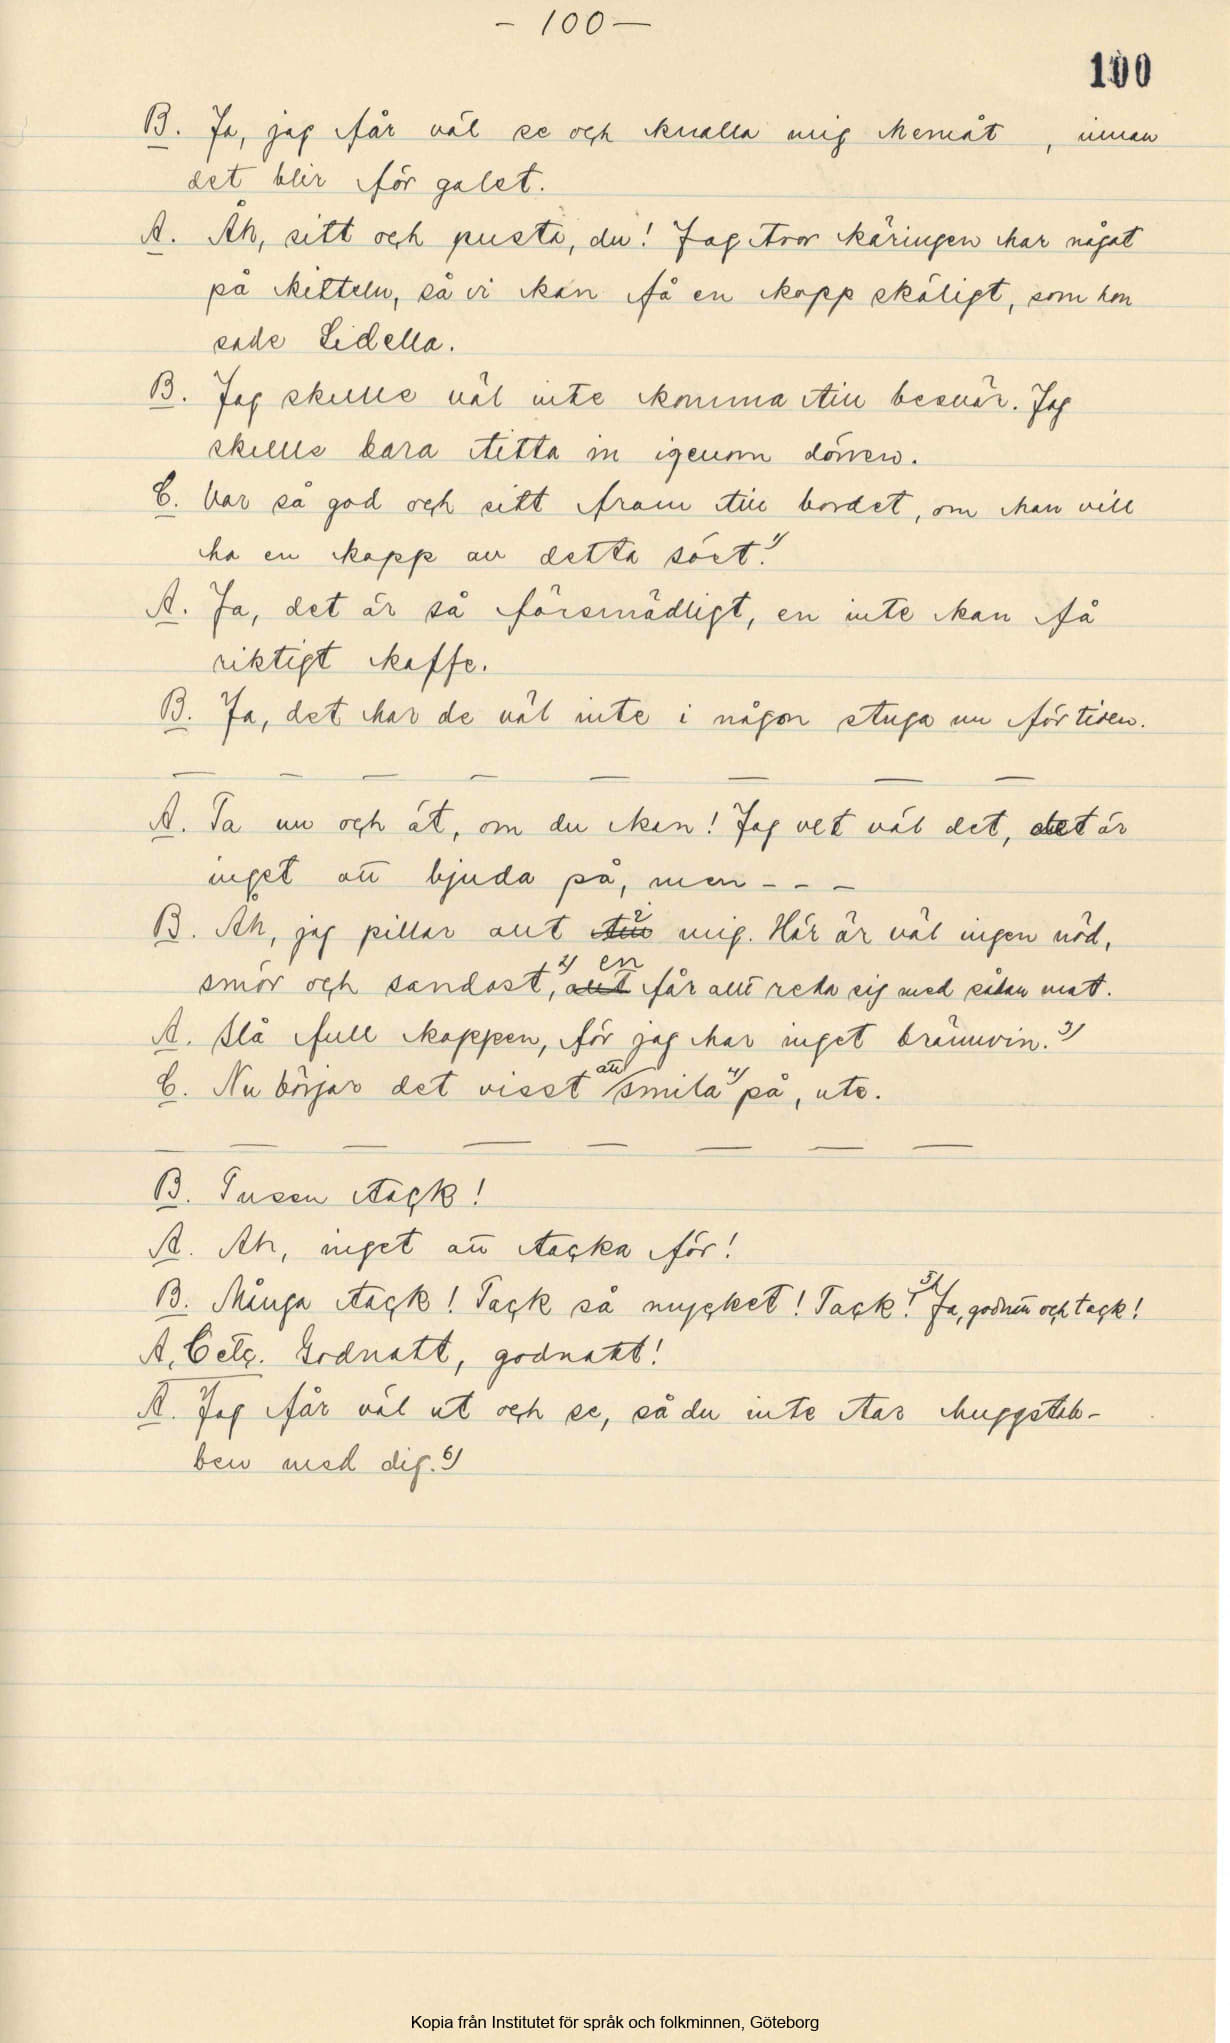 – 100 –
100
B. Ja, jag får väl se och knalla mig hemåt , innan
det blir för galet.
A. Åh, sitt och pusta, du! Jag tror käringen har något
på kitteln, så vi kan få en kopp skäligt, som hon
sade Lidella.
B. Jag skulle väl inte komma till besvär. Jag
skulle bara titta in igenom dörren.
C. Var så god och sitt fram till bordet, om han vill
ha en kopp av detta söet.1)
A. Ja, det är så försmädligt, en inte kan få
riktigt kaffe.
B. Ja, det har de väl inte i någon stuga nu för tiden.
— — — — — — — —
A. Ta nu och ät, om du kan! Jag vet väl det, det är
inget att bjuda på, men – – –
B. Åh, jag pillar allt till mig. Här är väl ingen nöd,
smör och sandost,2) allt en får allt reda sig med sådan mat.
A. Slå full koppen, för jag har inget brännvin.3)
C. Nu börjar det visst att smila4) på, ute.
— — — — — — — —
B. Tusen tack!
A. Ah, inget att tacka för!
B. Många tack! Tack så mycket! Tack!5) Ja, godnatt och tack!
A, C etc. Godnatt, godnatt!
A. Jag får väl ut och se, så du inte tar huggstab-
ben med dig.6)
Kopia från Institutet för språk och folkminnen, Göteborg